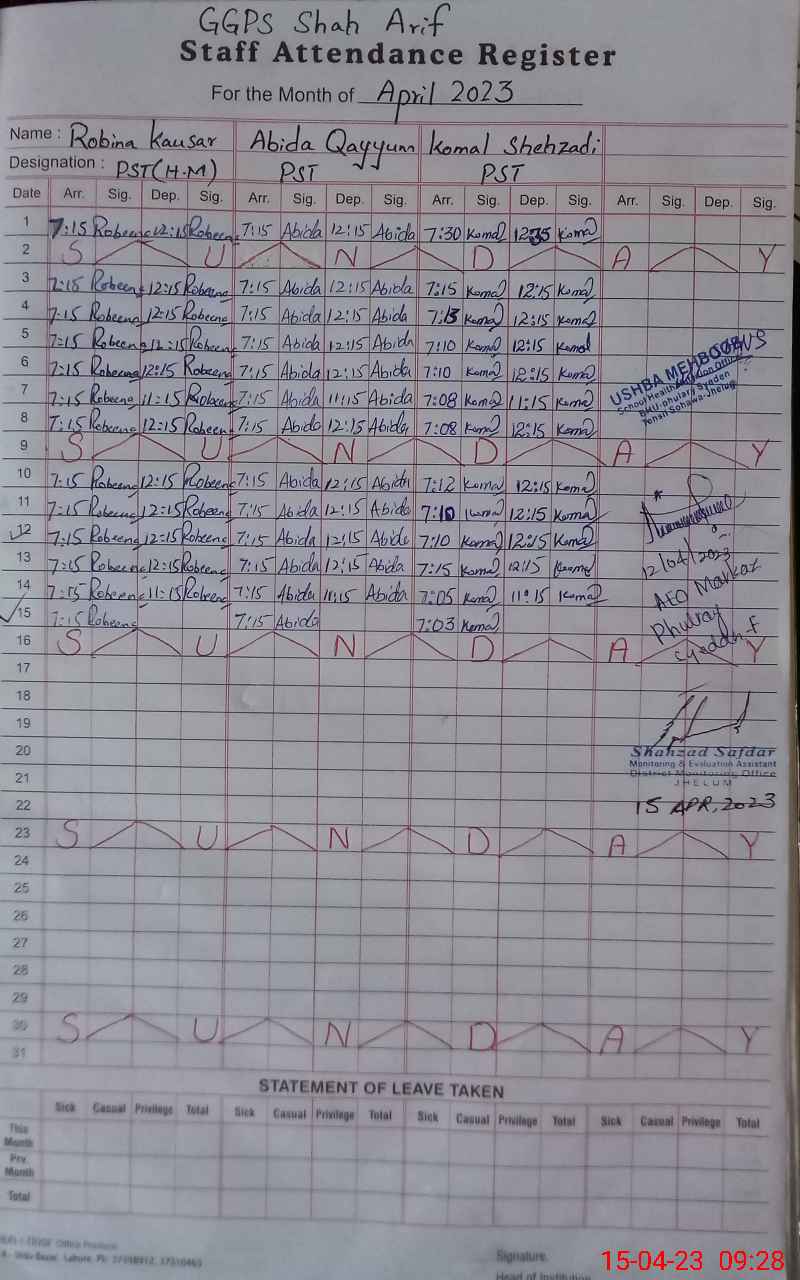 GGPS Shah Arif
Staff Attendance Register
For the Month of April 2023
Name : Robina Kausar Abida Qayyum Komal Shehzadi
Designation : PST(H.M) PST PST
Date Arr. Sig. Dep. Sig. Arr. Sig. Dep. Sig. Arr. Sig. Dep. Sig. Arr. Sig. Dep. Sig.
1 7:15 Robeena 12:15 Robeena 7:15 Abida 12:15 Abida 7:30 Komal Komal
2 S U N D A Y
3 7:15 Robeena 12:15 Robeena 7:15 Abida 12:15 Abida 7:15 Komal 12:15 Komal
4 7:15 Robeena 12:15 Robeena 7:15 Abida 12:15 Abida 7:13 Komal 12:15 Komal
5 7:15 Robeena 12:15 Robeena 7:15 Abida 12:15 Abida 7:10 Komal 12:15 Komal
6 7:15 Robeena 12:15 Robeena 7:15 Abida 12:15 Abida 7:10 Komal 12:15 Komal
7 7:15 Robeena 11:15 Robeena 7:15 Abida 11:15 Abida 7:08 Komal 11:15 Komal
8 7:15 Robeena 12:15 Robeena 7:15 Abida 12:15 Abida 7:08 Komal 12:15 Komal
USHBA MEHBOOB
School Health
BHU-phulary Syedan
Tehsil Sohawa-Jhelum
9 S U N D A Y
10 7:15 Robeena 12:15 Robeena 7:15 Abida 12:15 Abida 7:12 Komal 12:15 Komal
11 7:15 Robeena 12:15 Robeena 7:15 Abida 12:15 Abida 7:10 Komal 12:15 Komal
12 7:15 Robeena 12:15 Robeena 7:15 Abida 12:15 Abida 7:10 Komal 12:15 Komal
13 7:15 Robeena 12:15 Robeena 7:15 Abida 12:15 Abida 7:15 Komal 12:15 Komal
14 7:15 Robeena 11:15 Robeena 7:15 Abida 11:15 Abida 7:05 Komal 11:15 Komal
15 7:15 Robeena 7:15 Abida 7:03 Komal
12/04/2023
AEO Markaz
Phulray
Syeddan-f
16 S U N D A Y
17
18
19
20
21
22
Shahzad Safdar
Monitoring & Evaluation Assistant
District Monitoring Office
JHELUM
15 APR, 2023
23 S U N D A Y
24
25
26
27
28
29
30 S U N D A Y
31
STATEMENT OF LEAVE TAKEN
Sick Casual Privilege Total Sick Casual Privilege Total Sick Casual Privilege Total Sick Casual Privilege Total
This Month
Prv. Month
Total
Signature.
Head of Institution
15-04-23 09:28